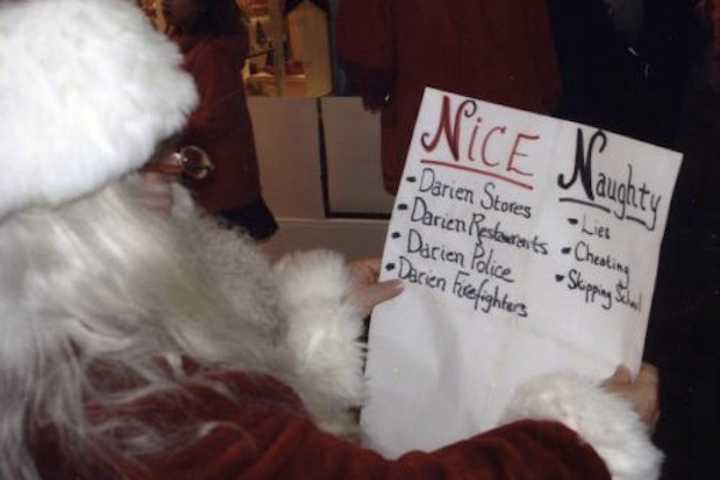 NiCE
- Darien Stores
- Darien Restaurants
- Darien Police
- Darien Firefighters
Naughty
- Lies
- Cheating
- Skipping School